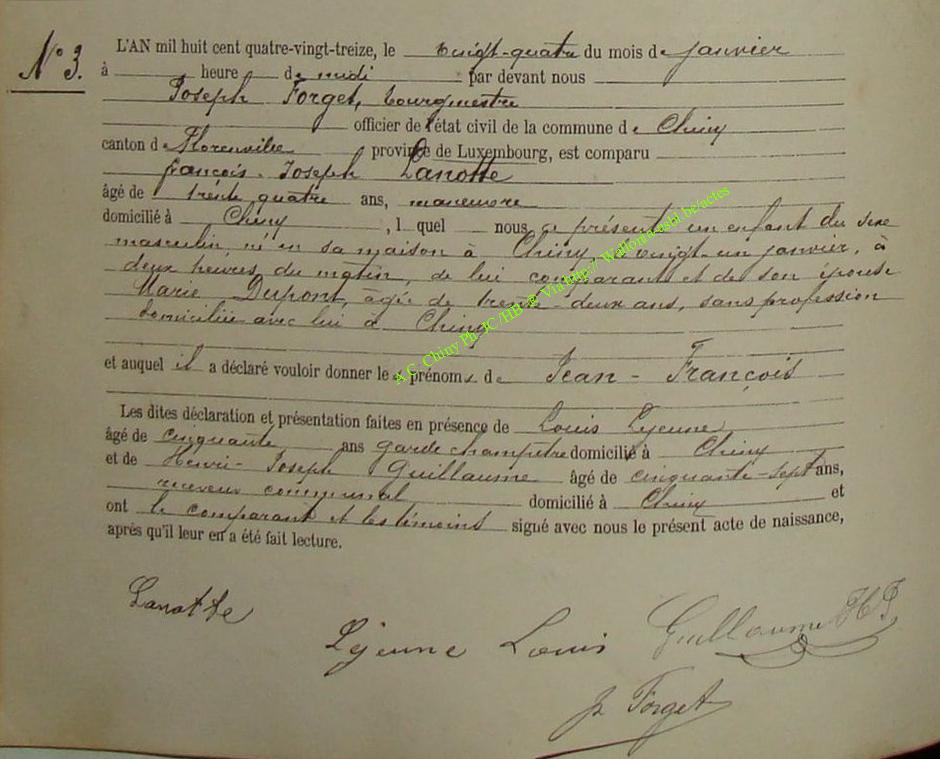 N° 3.
L'AN mil huit cent quatre-vingt-treize, le vingt-quatre du mois de janvier
à heure de midi par devant nous
Joseph Forget, bourgmestre
officier de l'état civil de la commune de Chiny
canton de Florenville province de Luxembourg, est comparu
françois-Joseph Lanotte
âgé de trente quatre ans, manœuvre
domicilié à Chiny, lquel nous a présenté un enfant du sexe
masculin, né en sa maison à Chiny, le vingt-un janvier, à
deux heures du matin, de lui comparant et de son épouse
Marie Dupont, âgée de trente-deux ans, sans profession
domiciliée avec lui à Chiny
et auquel il a déclaré vouloir donner les prénoms de Jean-François
Les dites déclaration et présentation faites en présence de Louis Lejeune
âgé de cinquante ans garde champêtre domicilié à Chiny
et de Henri-Joseph Guillaume âgé de cinquante-sept ans,
receveur communal domicilié à Chiny et
ont le comparant et les témoins signé avec nous le présent acte de naissance,
après qu'il leur en a été fait lecture.
Lanotte
Lejeune Louis Guillaume HJ
J. Forget
A.C. Chiny Ph. JC/HB @ Via http://Wallonia.ashi.be/actes